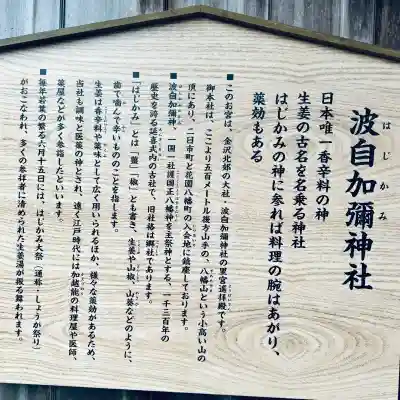 波自加彌神社
はじかみ
日本唯一香辛料の神
生姜の古名を名乗る神社
はじかみの神に参れば料理の腕はあがり、
薬効もある
■このお宮は、金沢北郊の大社・波自加彌神社の里宮遥拝殿です。
御本社は、ここより五百メートル後方山手の、八幡山という小高い山の
頂にあり、二日市町と花園八幡町の入会地に鎮座しております。
■波自加彌神、一国一社護国正八幡神を主祭神とする、一千三百年の
歴史を誇る延喜式内の古社で、旧社格は郷社であります。
■「はじかみ」とは「薑」「椒」とも書き、生姜や山椒、山葵などのように、
歯で噛んで辛いもののことを指します。
生姜は香辛料や薬味として広く用いられるほか、様々な薬効があるため、
当社も調味と医薬の神とされ、遠く江戸時代には加越能の料理屋や医師、
薬屋などが多く参詣したといいます。
■毎年若葉の繁る六月十五日には、はじかみ大祭(通称・しょうが祭り)
がおこなわれ、多くの参拝者に清められた生姜湯が振る舞われます。